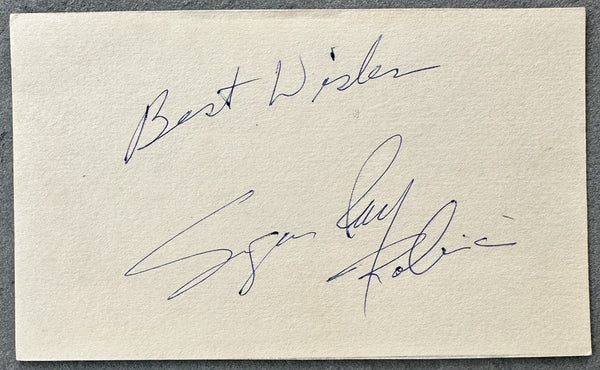 Best Wishes
Sugar Ray
Robinson